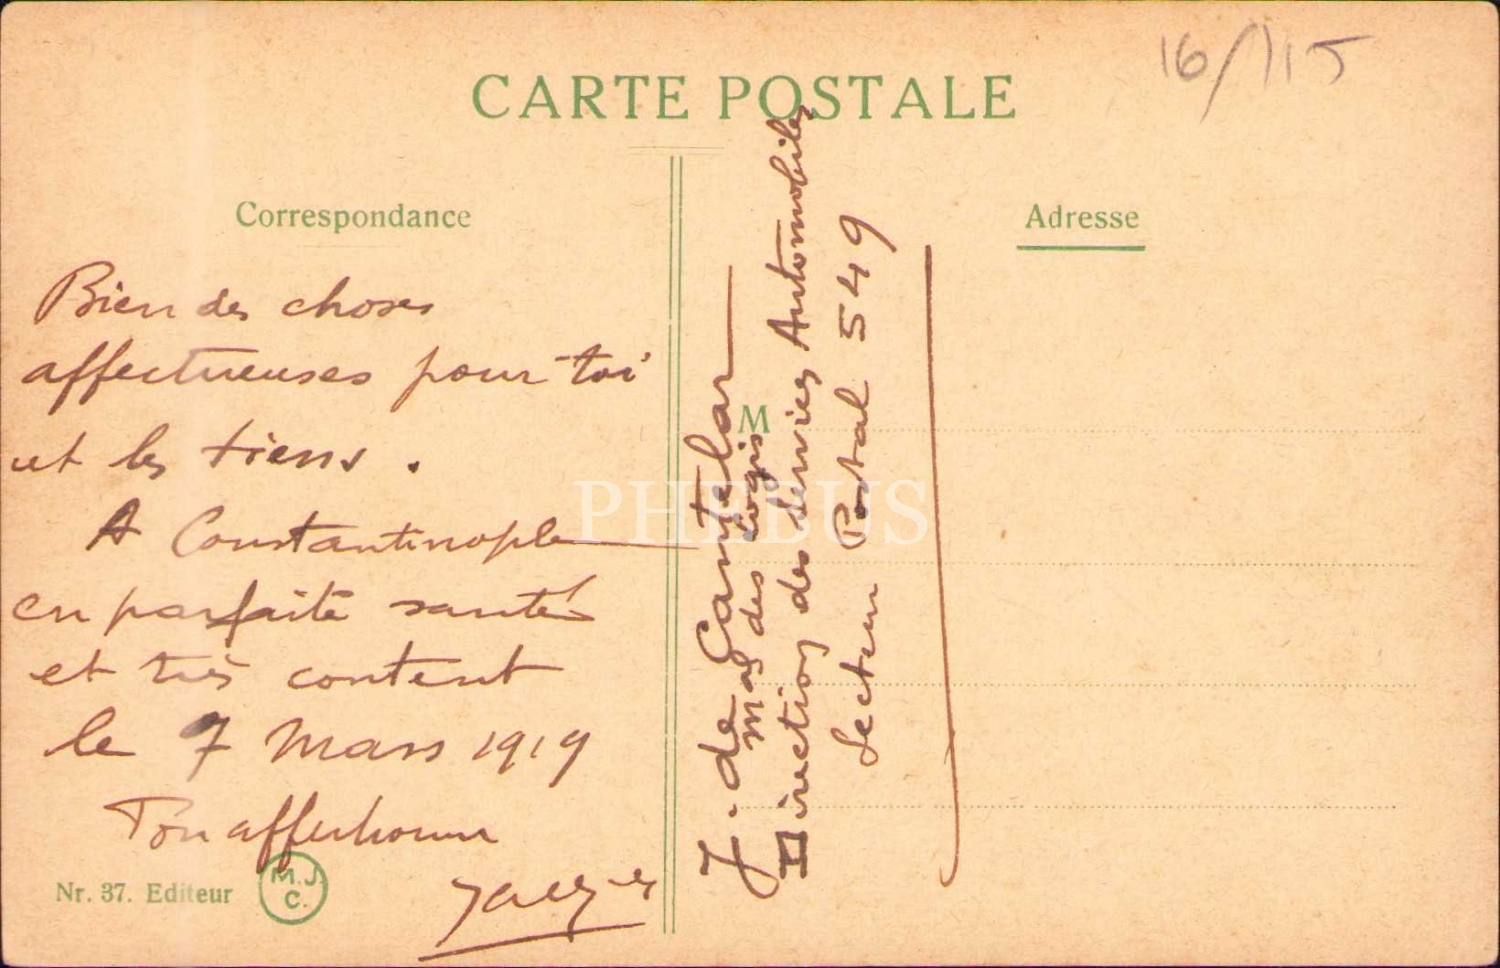 16/115
CARTE POSTALE
Correspondance
Adresse
Bien des choses
affectueuses pour toi
et les tiens.
A Constantinople
en parfaite santé
et très content
le 7 Mars 1919
Ton affectionné
Jacques
Nr. 37. Editeur
M.J.
C.
M
J. de Cantelar
Mal des Logis
Direction des Services Automobiles
Secteur Postal 549
PHEBUS